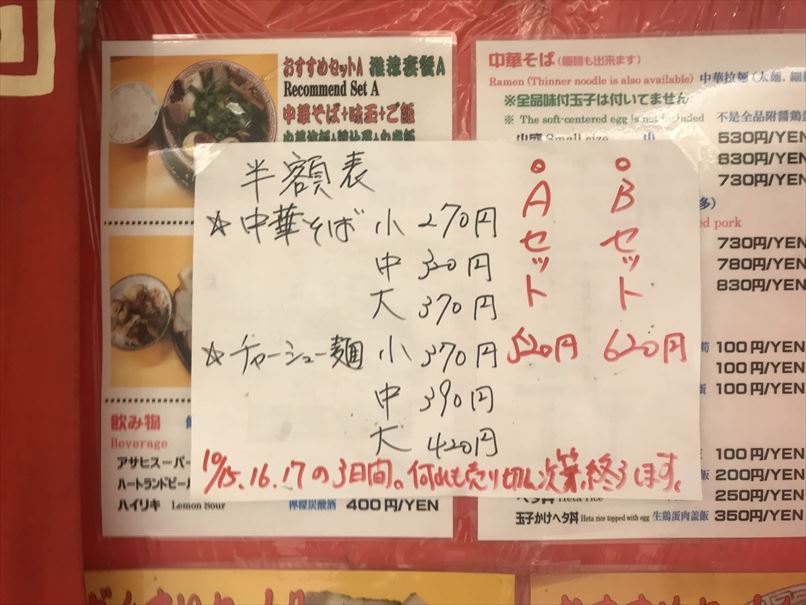 おすすめセットA 推薦套餐A
Recommend Set A
中華そば+味玉+ご飯
中華そば(細麺も出来ます)
Ramen (Thinner noodle is also available) 中華拉麵
※全品味付玉子は付いてません
※ The soft-centered egg is not included 不是全品附醤鶏
Small size 530円/YEN
630円/YEN
730円/YEN
ed pork
730円/YEN
780円/YEN
830円/YEN
100円/YEN
100円/YEN
100円/YEN
100円/YEN
200円/YEN
ヘタ丼 Heta rice 250円/YEN
玉子かけヘタ丼 Heta rice topped with egg 生鶏蛋肉蓋飯 350円/YEN
半額表
☆中華そば 小 270円
中 320円
大 370円
☆チャーシュー麺 小 370円
中 390円
大 420円
Aセット
520円
Bセット
620円
10/15.16.17の3日間。何れも売り切れ次第終了します。
飲み物
Beverage
アサヒスーパー
ハートランドビール
ハイリキ Lemon Sour 檸檬炭酸酒 400円/YEN